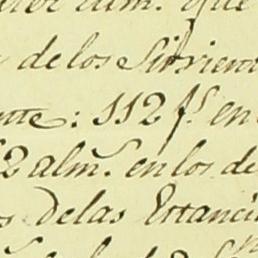 alm.s que
de los Sirvien
nte: 112 f.s en
2 alm.s en los de
s de las Estanci